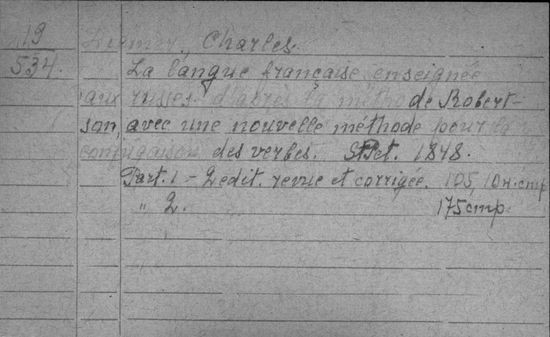 19
534.
Charles.
La langue française enseignée
aux russes d'après la méthode de Robert-
son, avec une nouvelle méthode pour la
conjugaison des verbes. St.Pet. 1848.
Part. 1 - 2 edit. revue et corrigée. 105, 104. стр
" 2. 175 стр.